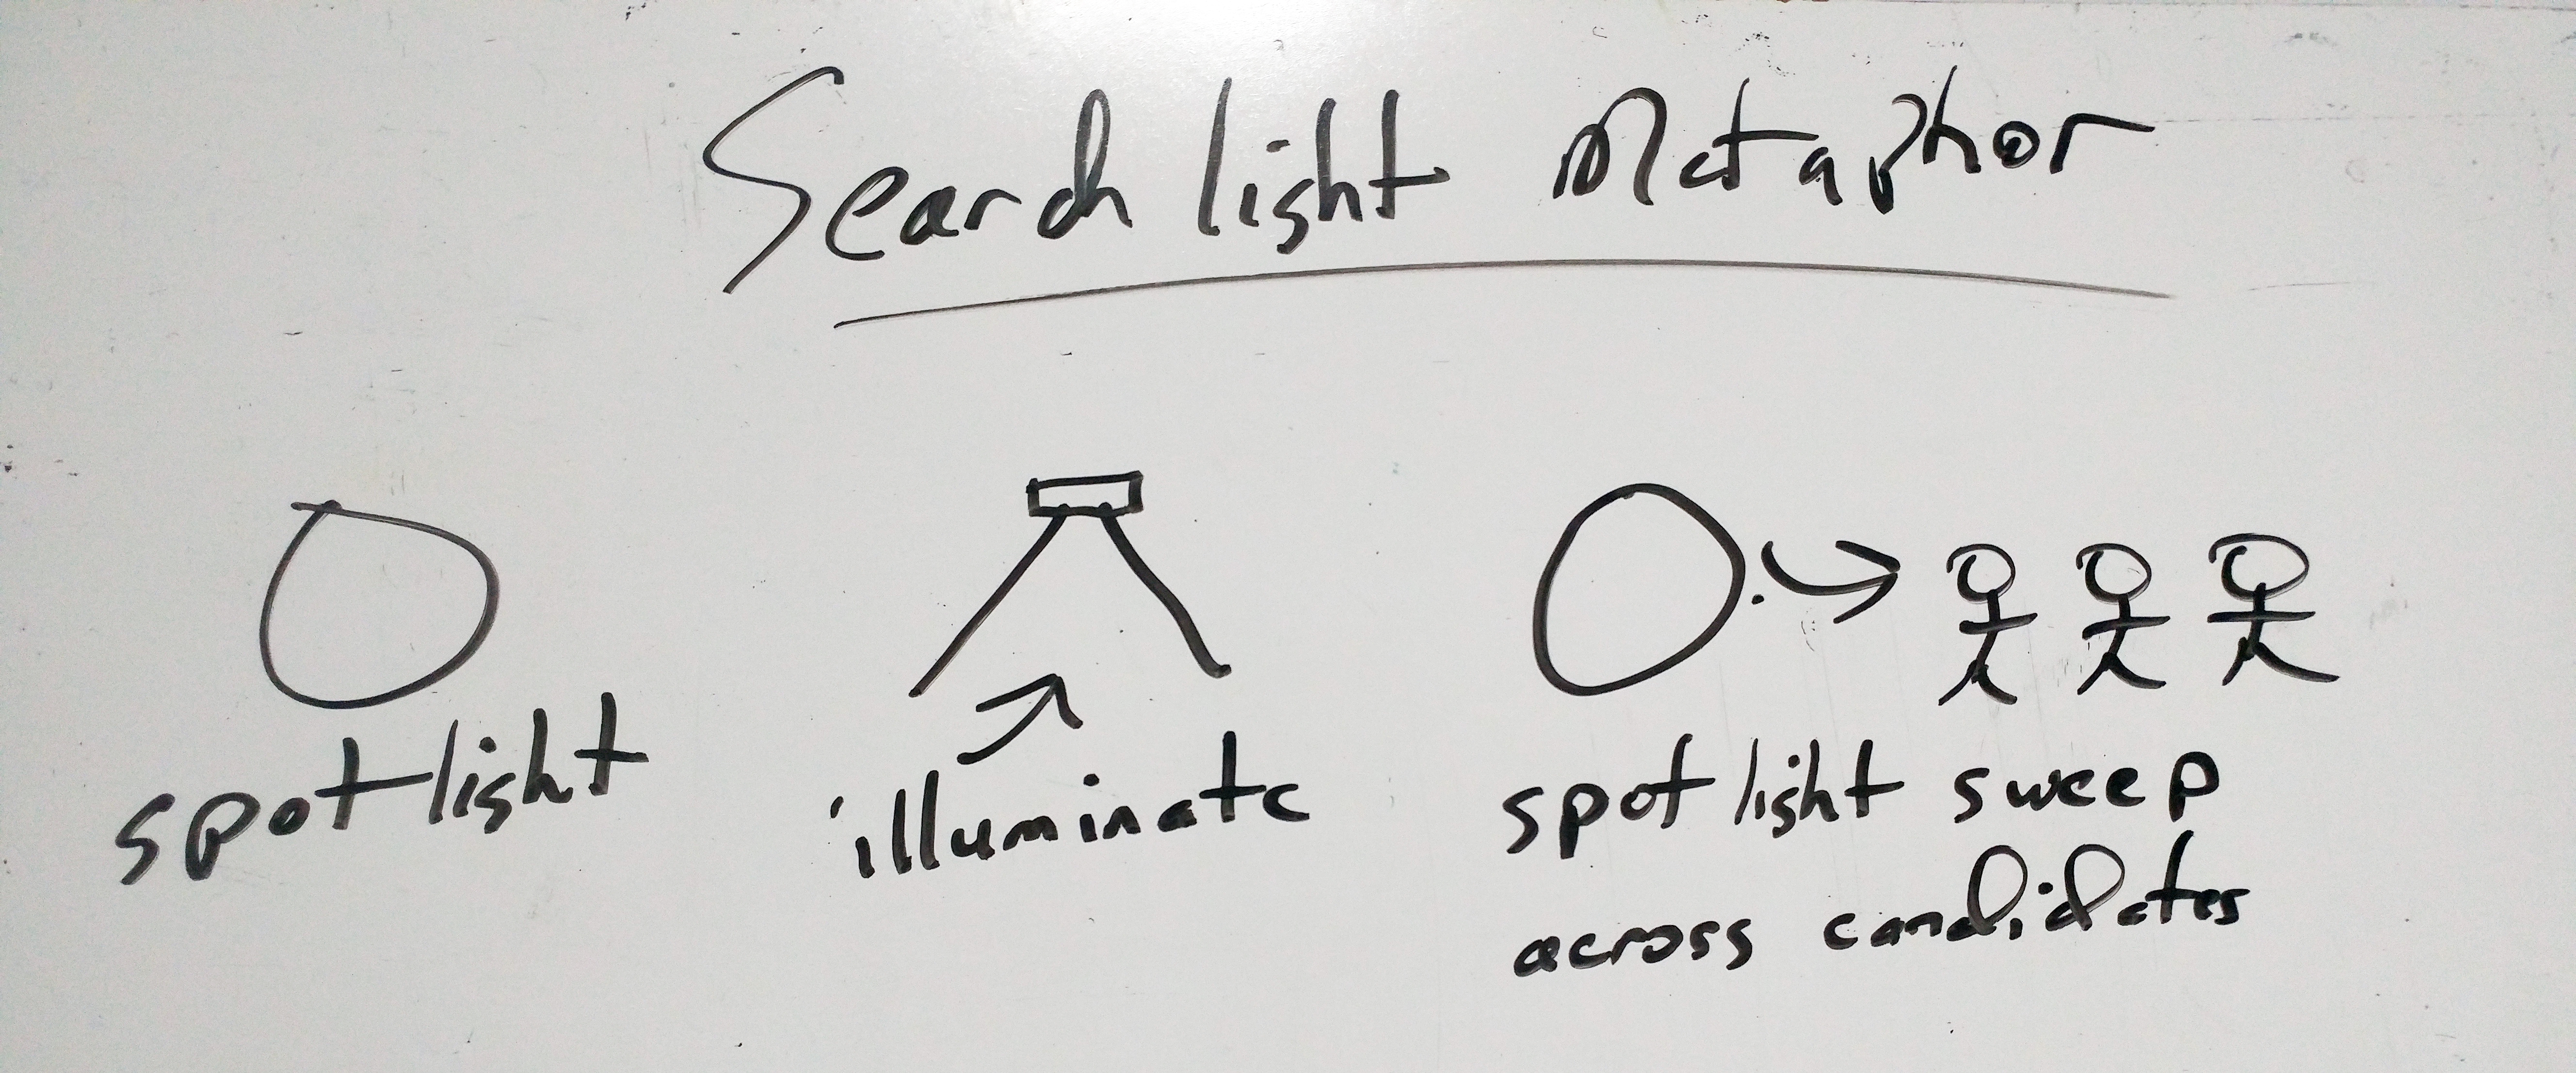 Search light Metaphor
spotlight
illuminate
spot light sweep
across candidates